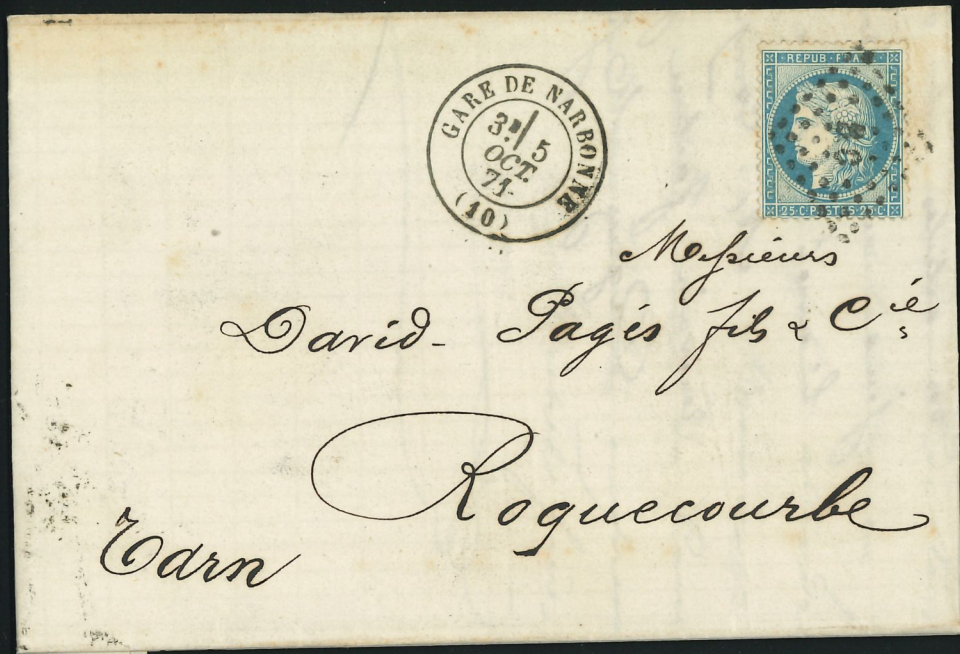 GARE DE NARBONNE
3E/ 5
OCT.
71
(10)
REPUB · FRANC
25·C·POSTES·25·C·
Messieurs
David - Pagés fils & Cie
Roquecourbe
Tarn